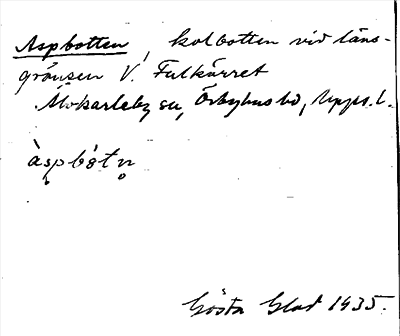 Aspbotten, kolbotten vid läns-
gränsen V. Fulkärret
Älvkarleby sn, Örbyhus hd, Upps. l.
àspbòtn̥
Gösta Glad 1935.